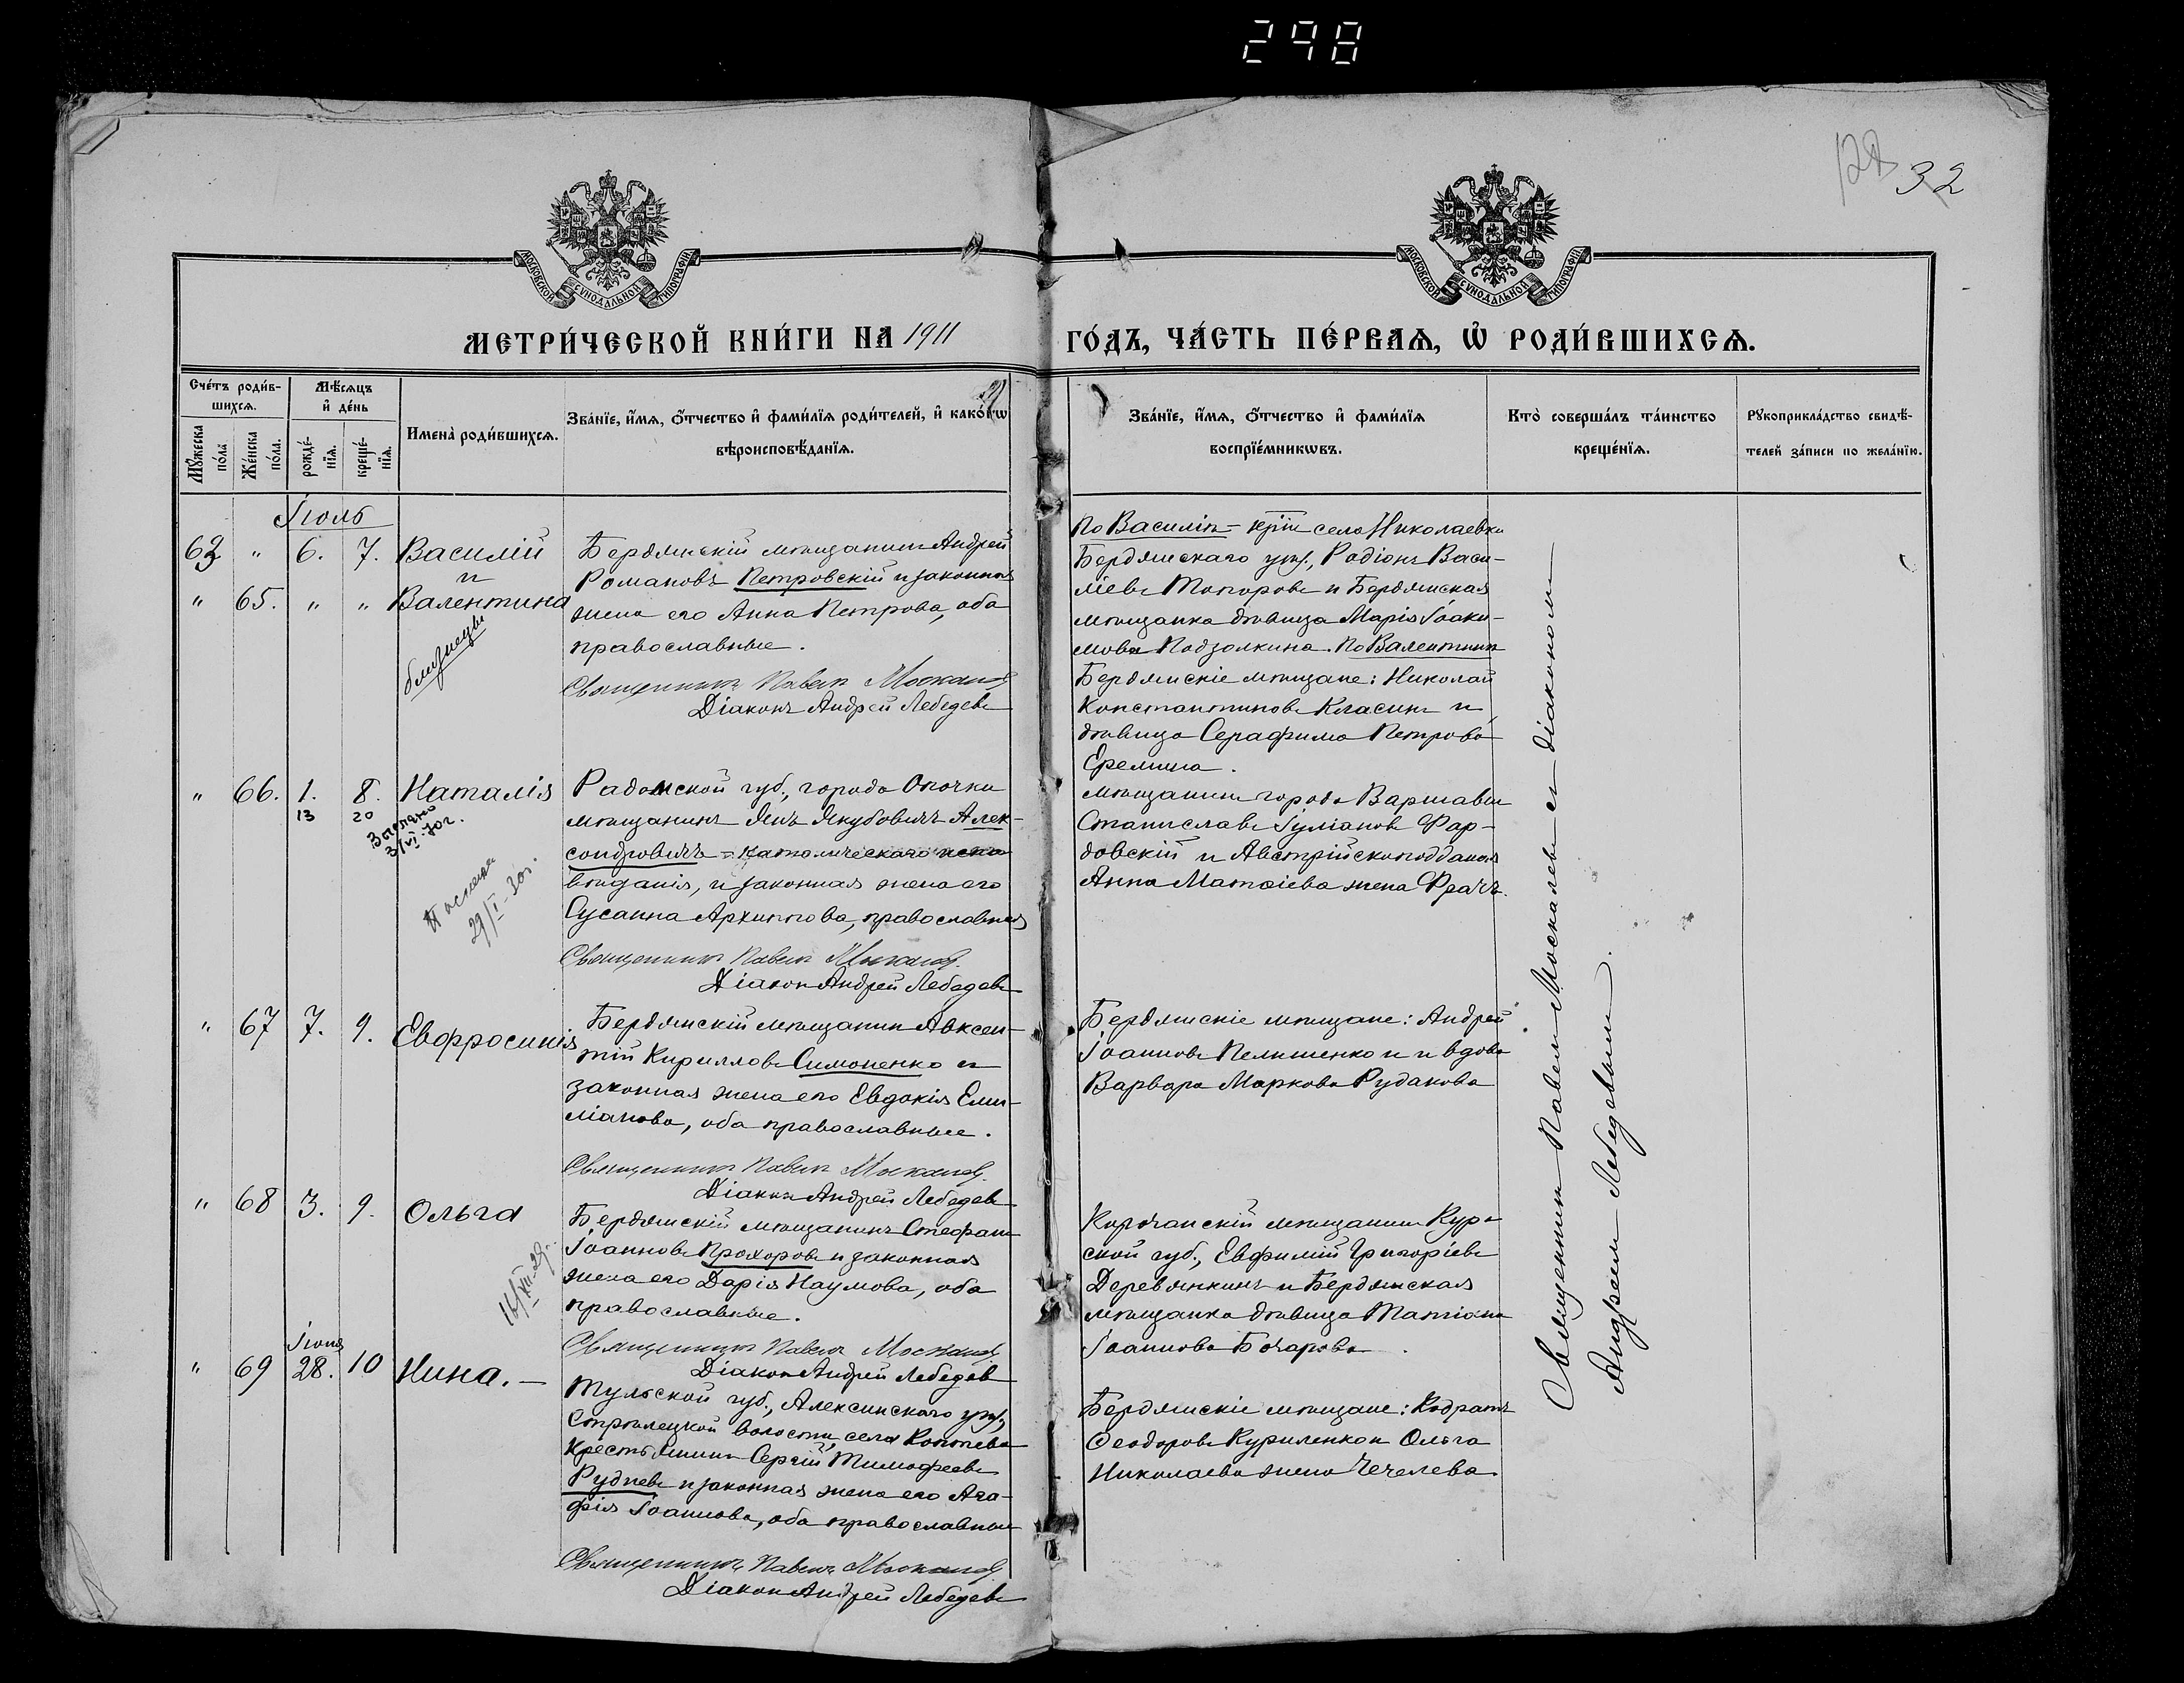 298
128
32
МОСКОВСКОЙ СѴНОДАЛЬНОЙ ТИПОГРАФІИ
МОСКОВСКОЙ СѴНОДАЛЬНОЙ ТИПОГРАФІИ
МЕТРИ́ЧЕСКОЙ КНИ́ГИ НА 1911
ГО́ДЪ, ЧА́СТЬ ПЕ́РВАѦ, Ѡ҆ РОДИ́ВШИХСѦ.
Сче́тъ роди́в-
шихсѧ.
Мꙋ́жеска по́ла
Же́нска по́ла.
Мѣ́сѧцъ
и҆ де́нь
рожде́-
нїѧ.
креще́-
нїѧ.
Имена̀ роди́вшихсѧ.
Зва́нїе, и҆́мѧ, ѻ҆́тчество и҆ фами́лїѧ роди́телей, и҆ како́гѡ
вѣроисповѣ́данїѧ.
Зва́нїе, и҆́мѧ, ѻ҆́тчество и҆ фами́лїѧ
воспрїе́мникѡвъ.
Кто̀ соверша́лъ та́инство
креще́нїѧ.
Рꙋкоприкла́дство свидѣ́-
телей за́писи по жела́нїю.
Іюль
63 " 6. 7. Василій
и
" 65. " " Валентина
близнецы
Бердянскій мѣщанинъ Андрей
Романовъ Петровскій и законная
жена его Анна Петрова, оба
православные.
Священникъ Павелъ Москалев
Діаконъ Андрей Лебедевъ
По Василіѣ = кр̄нъ села Николаевки
Бердянскаго уѣз., Родіонъ Васи-
ліевъ Топоровъ и Бердянская
мѣщанка дѣвица Марія Іоаки-
мова Подзолкина. По Валентинѣ
Бердянскіе мѣщане: Николай
Константиновъ Класинъ и
дѣвица Серафима Петрова
Еремина.
" 66. 1. 8. Наталія
13 20
3/VI 70г.
Послана
29/I-30г.
Радомской губ., города Опочки
мѣщанинъ Янъ Якубовичъ Алек-
сандровичъ = католическаго испо
вѣданія, и законная жена его
Сусанна Архиппова, православная
Священникъ Павелъ Москалев
Діаконъ Андрей Лебедевъ
Мѣщанинъ города Варшавы
Станиславъ Іуліановъ Фар-
довскій и Австрійскоподданая
Анна Матѳіева жена Фрачъ.
" 67 7. 9. Евфросинія.
Бердянскій мѣщанинъ Авксен-
тій Кирилловъ Симоненко и
законная жена его Евдокія Еми-
ліанова, оба православные.
Священникъ Павелъ Москалев
Діаконъ Андрей Лебедевъ
Бердянскіе мѣщане: Андрей
Іоанновъ Пелишенко и вдова
Варвара Маркова Рудакова
" 68 3. 9. Ольга
16/XII-29г.
Бердянскій мѣщанинъ Стефанъ
Іоанновъ Прохоровъ и законная
жена его Дарія Наумова, оба
православные.
Священникъ Павелъ Москалев
Діаконъ Андрей Лебедевъ
Корочанскій мѣщанинъ Кур-
ской губ., Евфимій Григоріевъ
Деревянкинъ и Бердянская
мѣщанка дѣвица Татіана
Іоаннова Бочарова.
Іюня
" 69 28. 10 Нина. —
Тульской губ., Алексинскаго уѣз.,
Стрѣлецкой волости, села Коптева
крестьянинъ Сергій Тимофеевъ
Рудневъ и законная жена его Ага-
фія Іоаннова, оба православные
Священникъ Павелъ Москалев
Діаконъ Андрей Лебедевъ
Бердянскіе мѣщане: Кодратъ
Ѳеодоровъ Куриленко и Ольга
Николаева жена Чечелева.
Священникъ Павелъ Москалевъ съ діакономъ
Андреемъ Лебедевымъ.